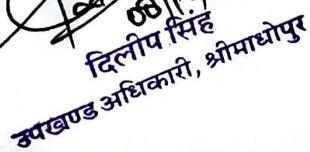 दिलीप सिंह
उपखण्ड अधिकारी, श्रीमाधोपुर